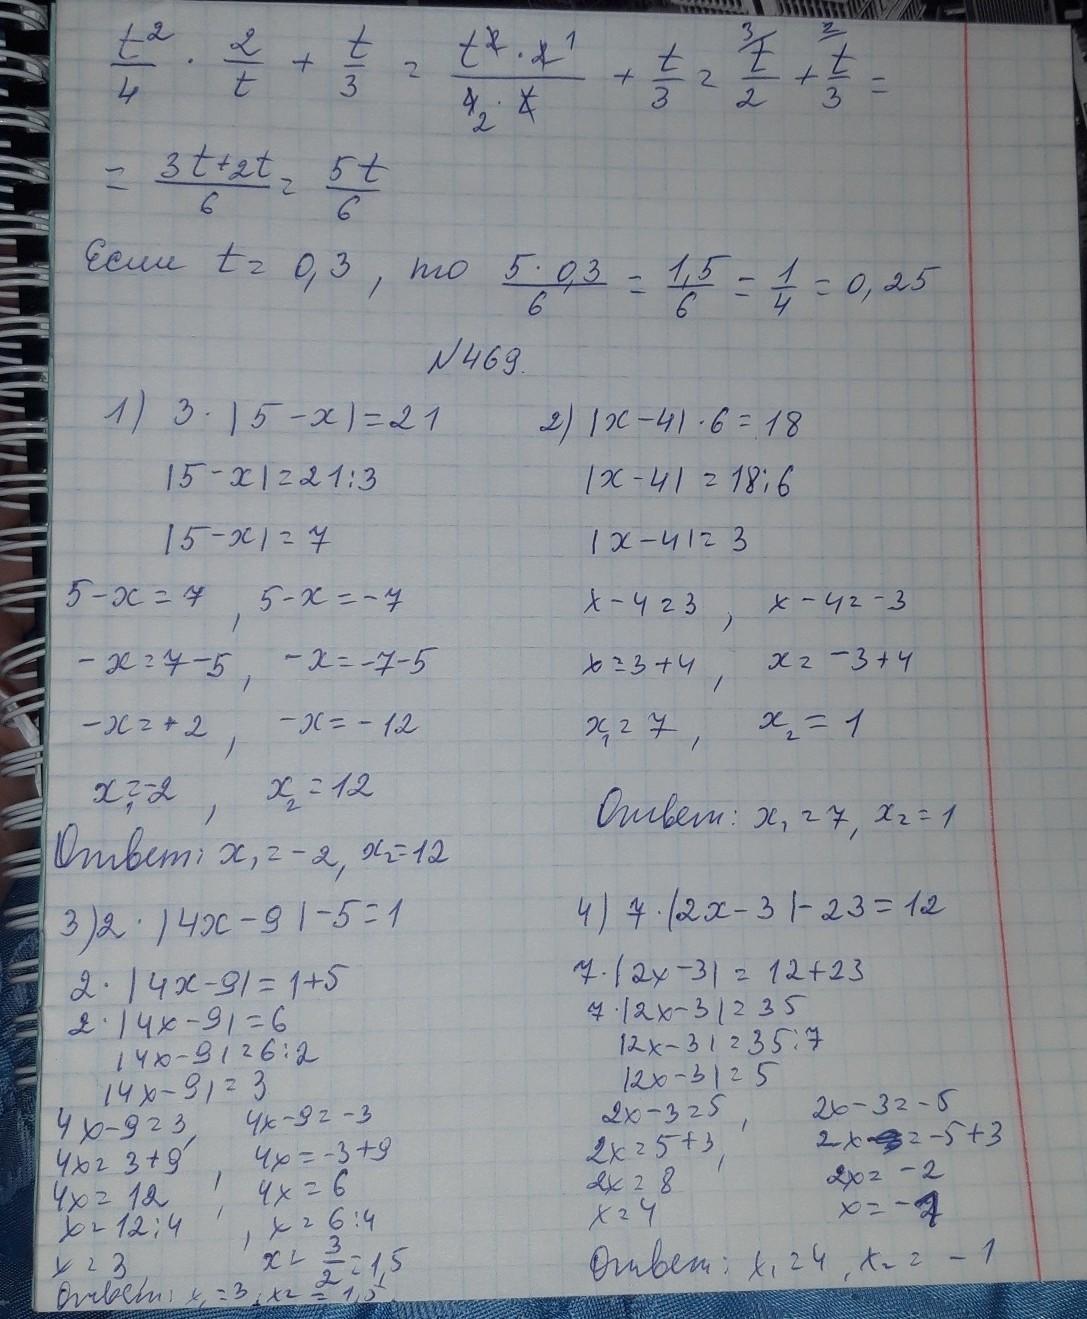 t²/4 · 2/t + t/3 = t² · 2 1/4 2 · t + t/3 = 3 t/2 + 2 t/3 =
= 3t+2t/6 = 5t/6
Если t = 0,3, то 5·0,3/6 = 1,5/6 = 1/4 = 0,25
№469.
1) 3·|5-x|=21
|5-x|=21:3
|5-x|=7
5-x=7, 5-x=-7
-x=7-5, -x=-7-5
-x=+2, -x=-12
x₁=-2, x₂=12
Ответ: x₁=-2, x₂=12
2) |x-4|·6=18
|x-4|=18:6
|x-4|=3
x-4=3, x-4=-3
x=3+4, x=-3+4
x₁=7, x₂=1
Ответ: x₁=7, x₂=1
3) 2·|4x-9|-5=1
2·|4x-9|=1+5
2·|4x-9|=6
|4x-9|=6:2
|4x-9|=3
4x-9=3, 4x-9=-3
4x=3+9, 4x=-3+9
4x=12, 4x=6
x=12:4, x=6:4
x=3 x=3/2=1,5
Ответ: x₁=3, x₂=1,5.
4) 7·|2x-3|-23=12
7·|2x-3|=12+23
7·|2x-3|=35
|2x-3|=35:7
|2x-3|=5
2x-3=5, 2x-3=-5
2x=5+3, 2x=-5+3
2x=8 2x=-2
x=4 x=-1
Ответ: x₁=4, x₂=-1